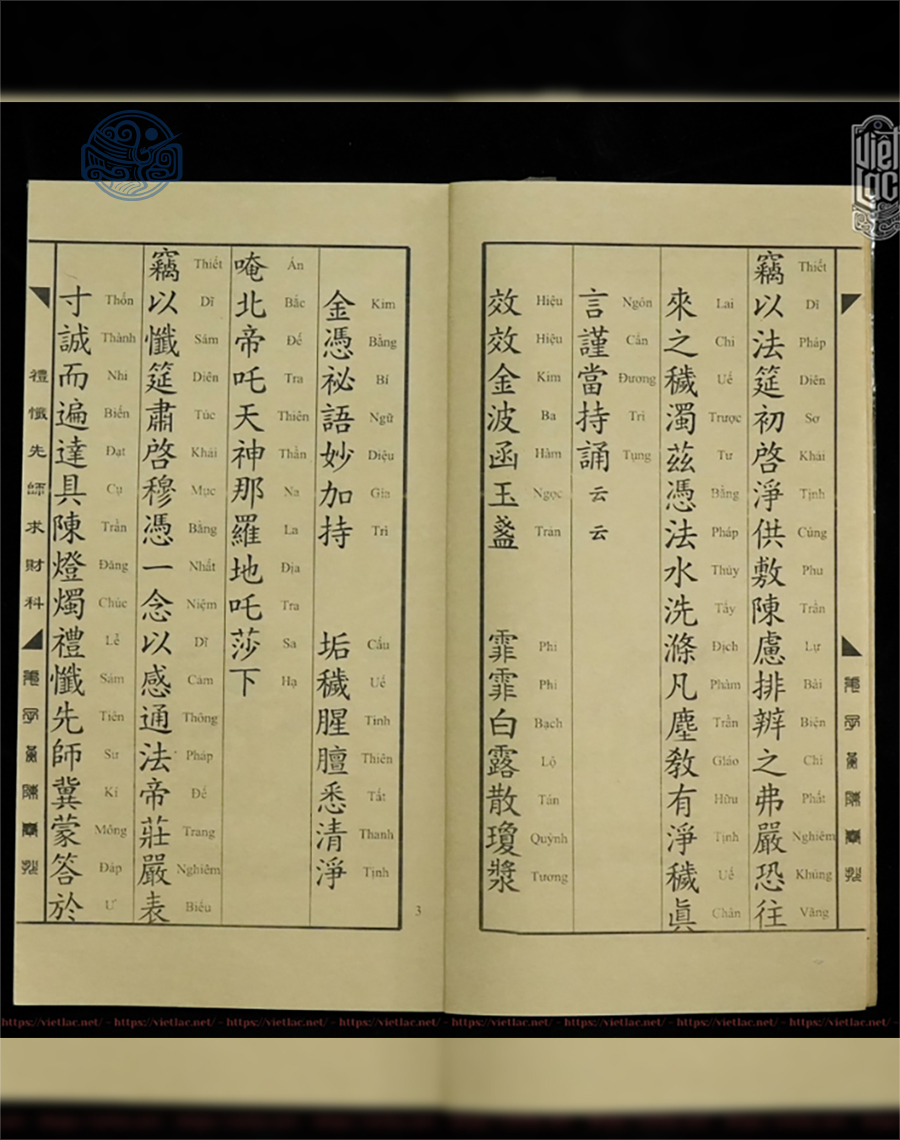 竊以法筵初啓淨供敷陳慮排辨之弗嚴恐往
Thiết Dĩ Pháp Diên Sơ Khải Tịnh Cúng Phu Trần Lự Bài Biện Chi Phất Nghiêm Khủng Vãng
來之穢濁茲憑法水洗滌凡塵敎有淨穢眞
Lai Chi Uế Trược Tư Bằng Pháp Thủy Tẩy Địch Phàm Trần Giáo Hữu Tịnh Uế Chân
言謹當持誦云云
Ngôn Cẩn Đương Trì Tụng
效效金波函玉盞 霏霏白露散瓊漿
Hiệu Hiệu Kim Ba Hàm Ngọc Trản Phi Phi Bạch Lộ Tán Quỳnh Tương
金憑祕語妙加持 垢穢腥膻悉清淨
Kim Bằng Bí Ngữ Diệu Gia Trì Cấu Uế Tinh Thiên Tất Thanh Tịnh
唵北帝吒天神那羅地吒莎下
Án Bắc Đế Tra Thiên Thần Na La Địa Tra Sa Hạ
竊以懺筵肅啓穆憑一念以感通法帝莊嚴表
Thiết Dĩ Sám Diên Túc Khải Mục Bằng Nhất Niệm Dĩ Cảm Thông Pháp Đế Trang Nghiêm Biểu
寸誠而遍達具陳燈燭禮懺先師冀蒙答於
Thốn Thành Nhi Biến Đạt Cụ Trần Đăng Chúc Lễ Sám Tiên Sư Kí Mông Đáp Ư
禮懺先師求財科
3
Việt Lạc
https://vietlac.net/ - https://vietlac.net/ - https://vietlac.net/ - https://vietlac.net/ - https://vietlac.net/ - https://vietlac.net/ - https://vietlac.net/ - https://vietlac.net/ -